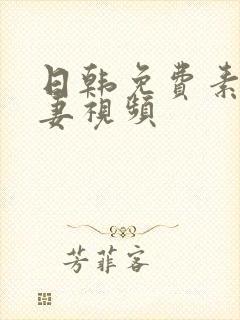 日韩免费素
妻視頻
芳菲客